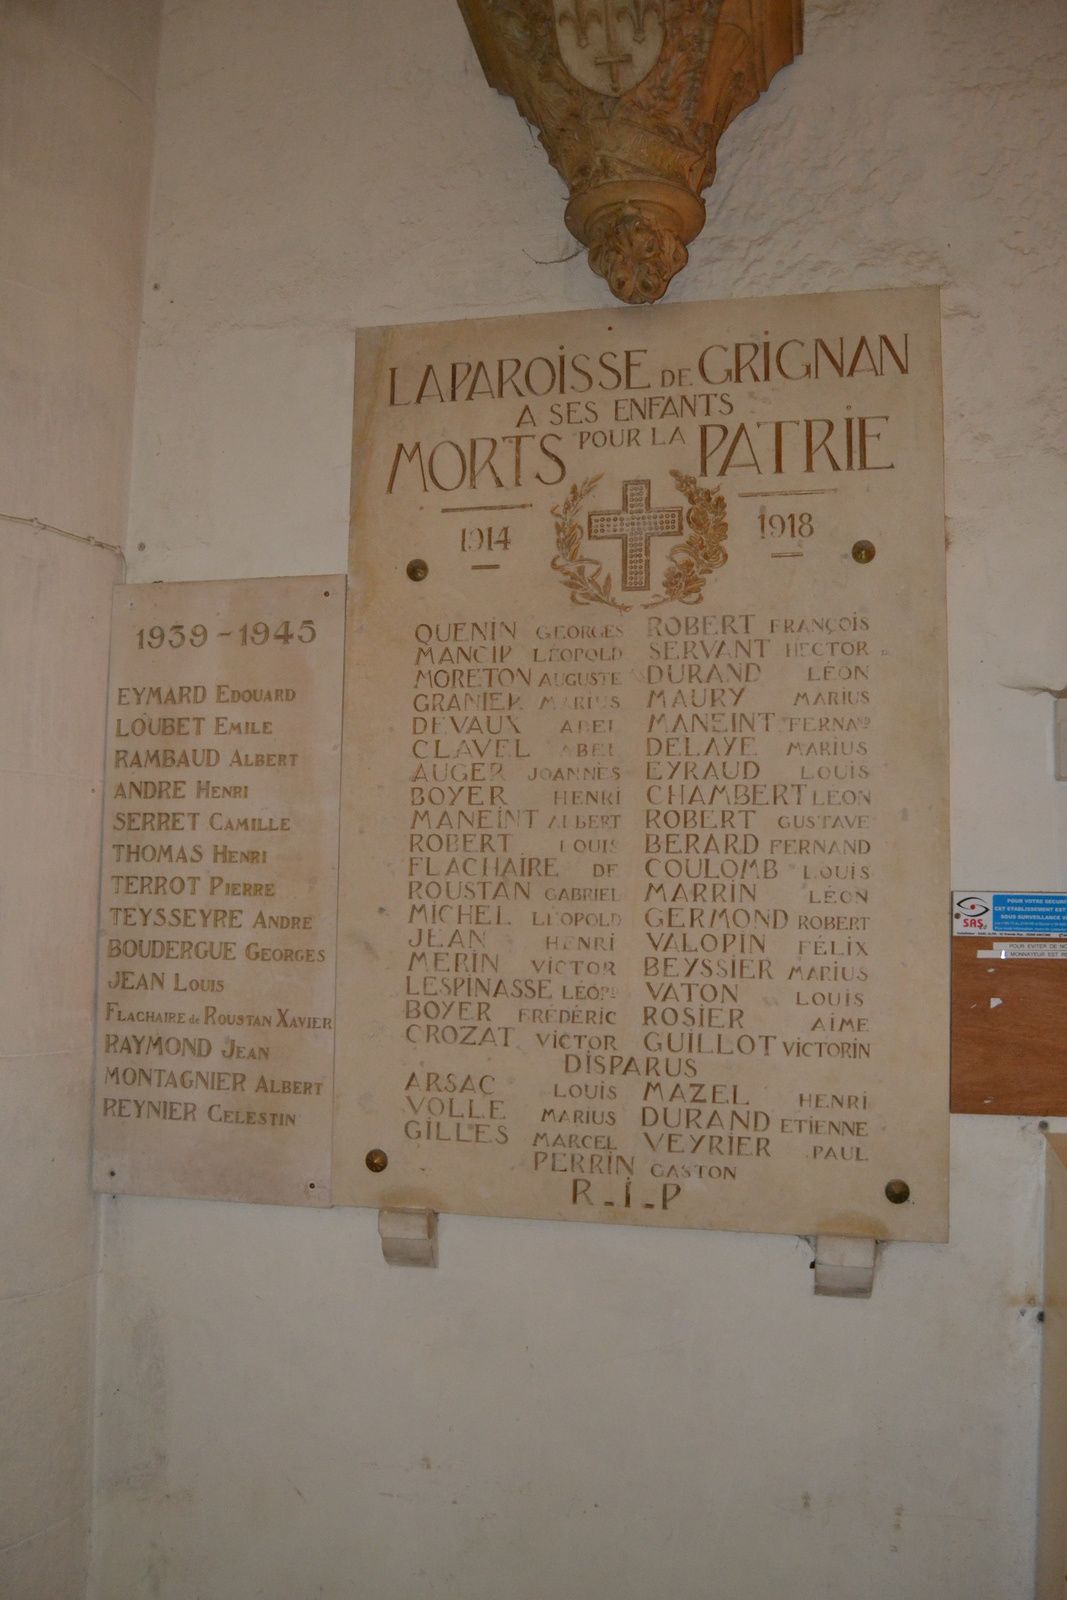 LA PAROISSE DE GRIGNAN
A SES ENFANTS
MORTS POUR LA PATRIE
1914 1918
QUENIN GEORGES
MANCIP LÉOPOLD
MORETON AUGUSTE
GRANIER MARIUS
DEVAUX ABEL
CLAVEL ABEL
AUGER JOANNÈS
BOYER HENRI
MANEINT ALBERT
ROBERT LOUIS
FLACHAIRE DE
ROUSTAN GABRIEL
MICHEL LÉOPOLD
JEAN HENRI
MERIN VICTOR
LESPINASSE LÉOPD
BOYER FRÉDÉRIC
CROZAT VICTOR
ROBERT FRANÇOIS
SERVANT HECTOR
DURAND LÉON
MAURY MARIUS
MANEINT FERNAND
DELAYE MARIUS
EYRAUD LOUIS
CHAMBERT LEON
ROBERT GUSTAVE
BERARD FERNAND
COULOMB LOUIS
MARRIN LÉON
GERMOND ROBERT
VALOPIN FÉLIX
BEYSSIER MARIUS
VATON LOUIS
ROSIER AIME
GUILLOT VICTORIN
DISPARUS
ARSAC LOUIS
VOLLE MARIUS
GILLES MARCEL
MAZEL HENRI
DURAND ETIENNE
VEYRIER PAUL
PERRIN GASTON
R_I_P
1939-1945
EYMARD EDOUARD
LOUBET EMILE
RAMBAUD ALBERT
ANDRE HENRI
SERRET CAMILLE
THOMAS HENRI
TERROT PIERRE
TEYSSEYRE ANDRE
BOUDERGUE GEORGES
JEAN LOUIS
FLACHAIRE de ROUSTAN XAVIER
RAYMOND JEAN
MONTAGNIER ALBERT
REYNIER CELESTIN
SAS
POUR VOTRE SECURI
CET ETABLISSEMENT EST
SOUS SURVEILLANCE V
POUR EVITER DE
MONNAYEUR EST